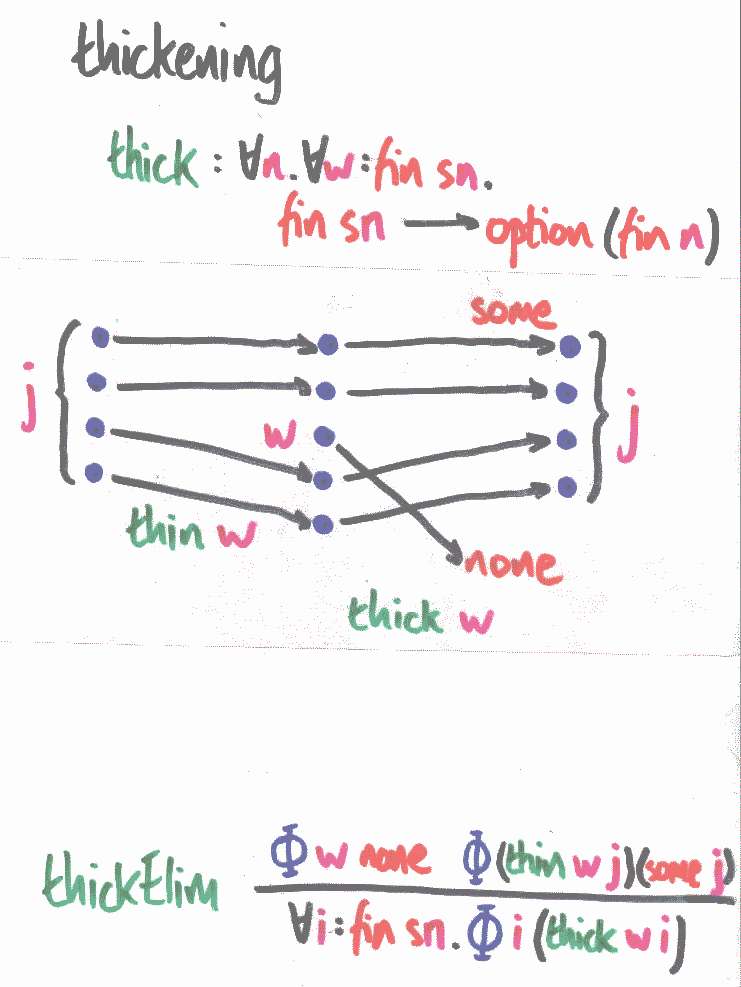 thickening
thick : ∀n. ∀w : fin sn.
fin sn → option (fin n)
some
j
w
j
thin w
none
thick w
Φ w none Φ (thin w j) (some j)
thickElim
∀i : fin sn. Φ i (thick w i)